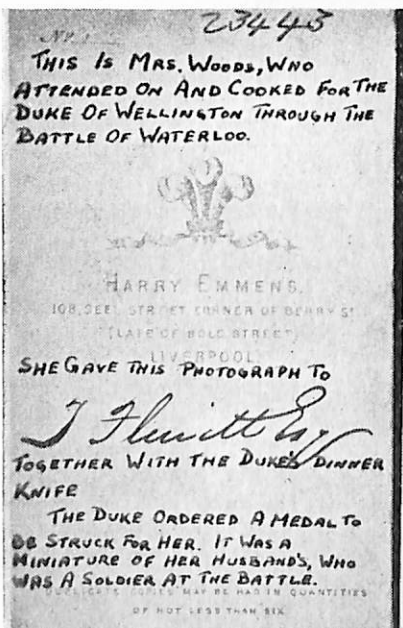 23443
No.
THIS IS MRS. WOODS, WHO
ATTENDED ON AND COOKED FOR THE
DUKE OF WELLINGTON THROUGH THE
BATTLE OF WATERLOO.
HARRY EMMENS.
108, SEEL STREET CORNER OF BERRY ST
(LATE OF BOLD STREET)
LIVERPOOL
SHE GAVE THIS PHOTOGRAPH TO
Esq
TOGETHER WITH THE DUKE'S DINNER
KNIFE
THE DUKE ORDERED A MEDAL TO
BE STRUCK FOR HER. IT WAS A
MINIATURE OF HER HUSBAND'S, WHO
WAS A SOLDIER AT THE BATTLE.
DUPLICATE COPIES MAY BE HAD IN QUANTITIES
OF NOT LESS THAN SIX